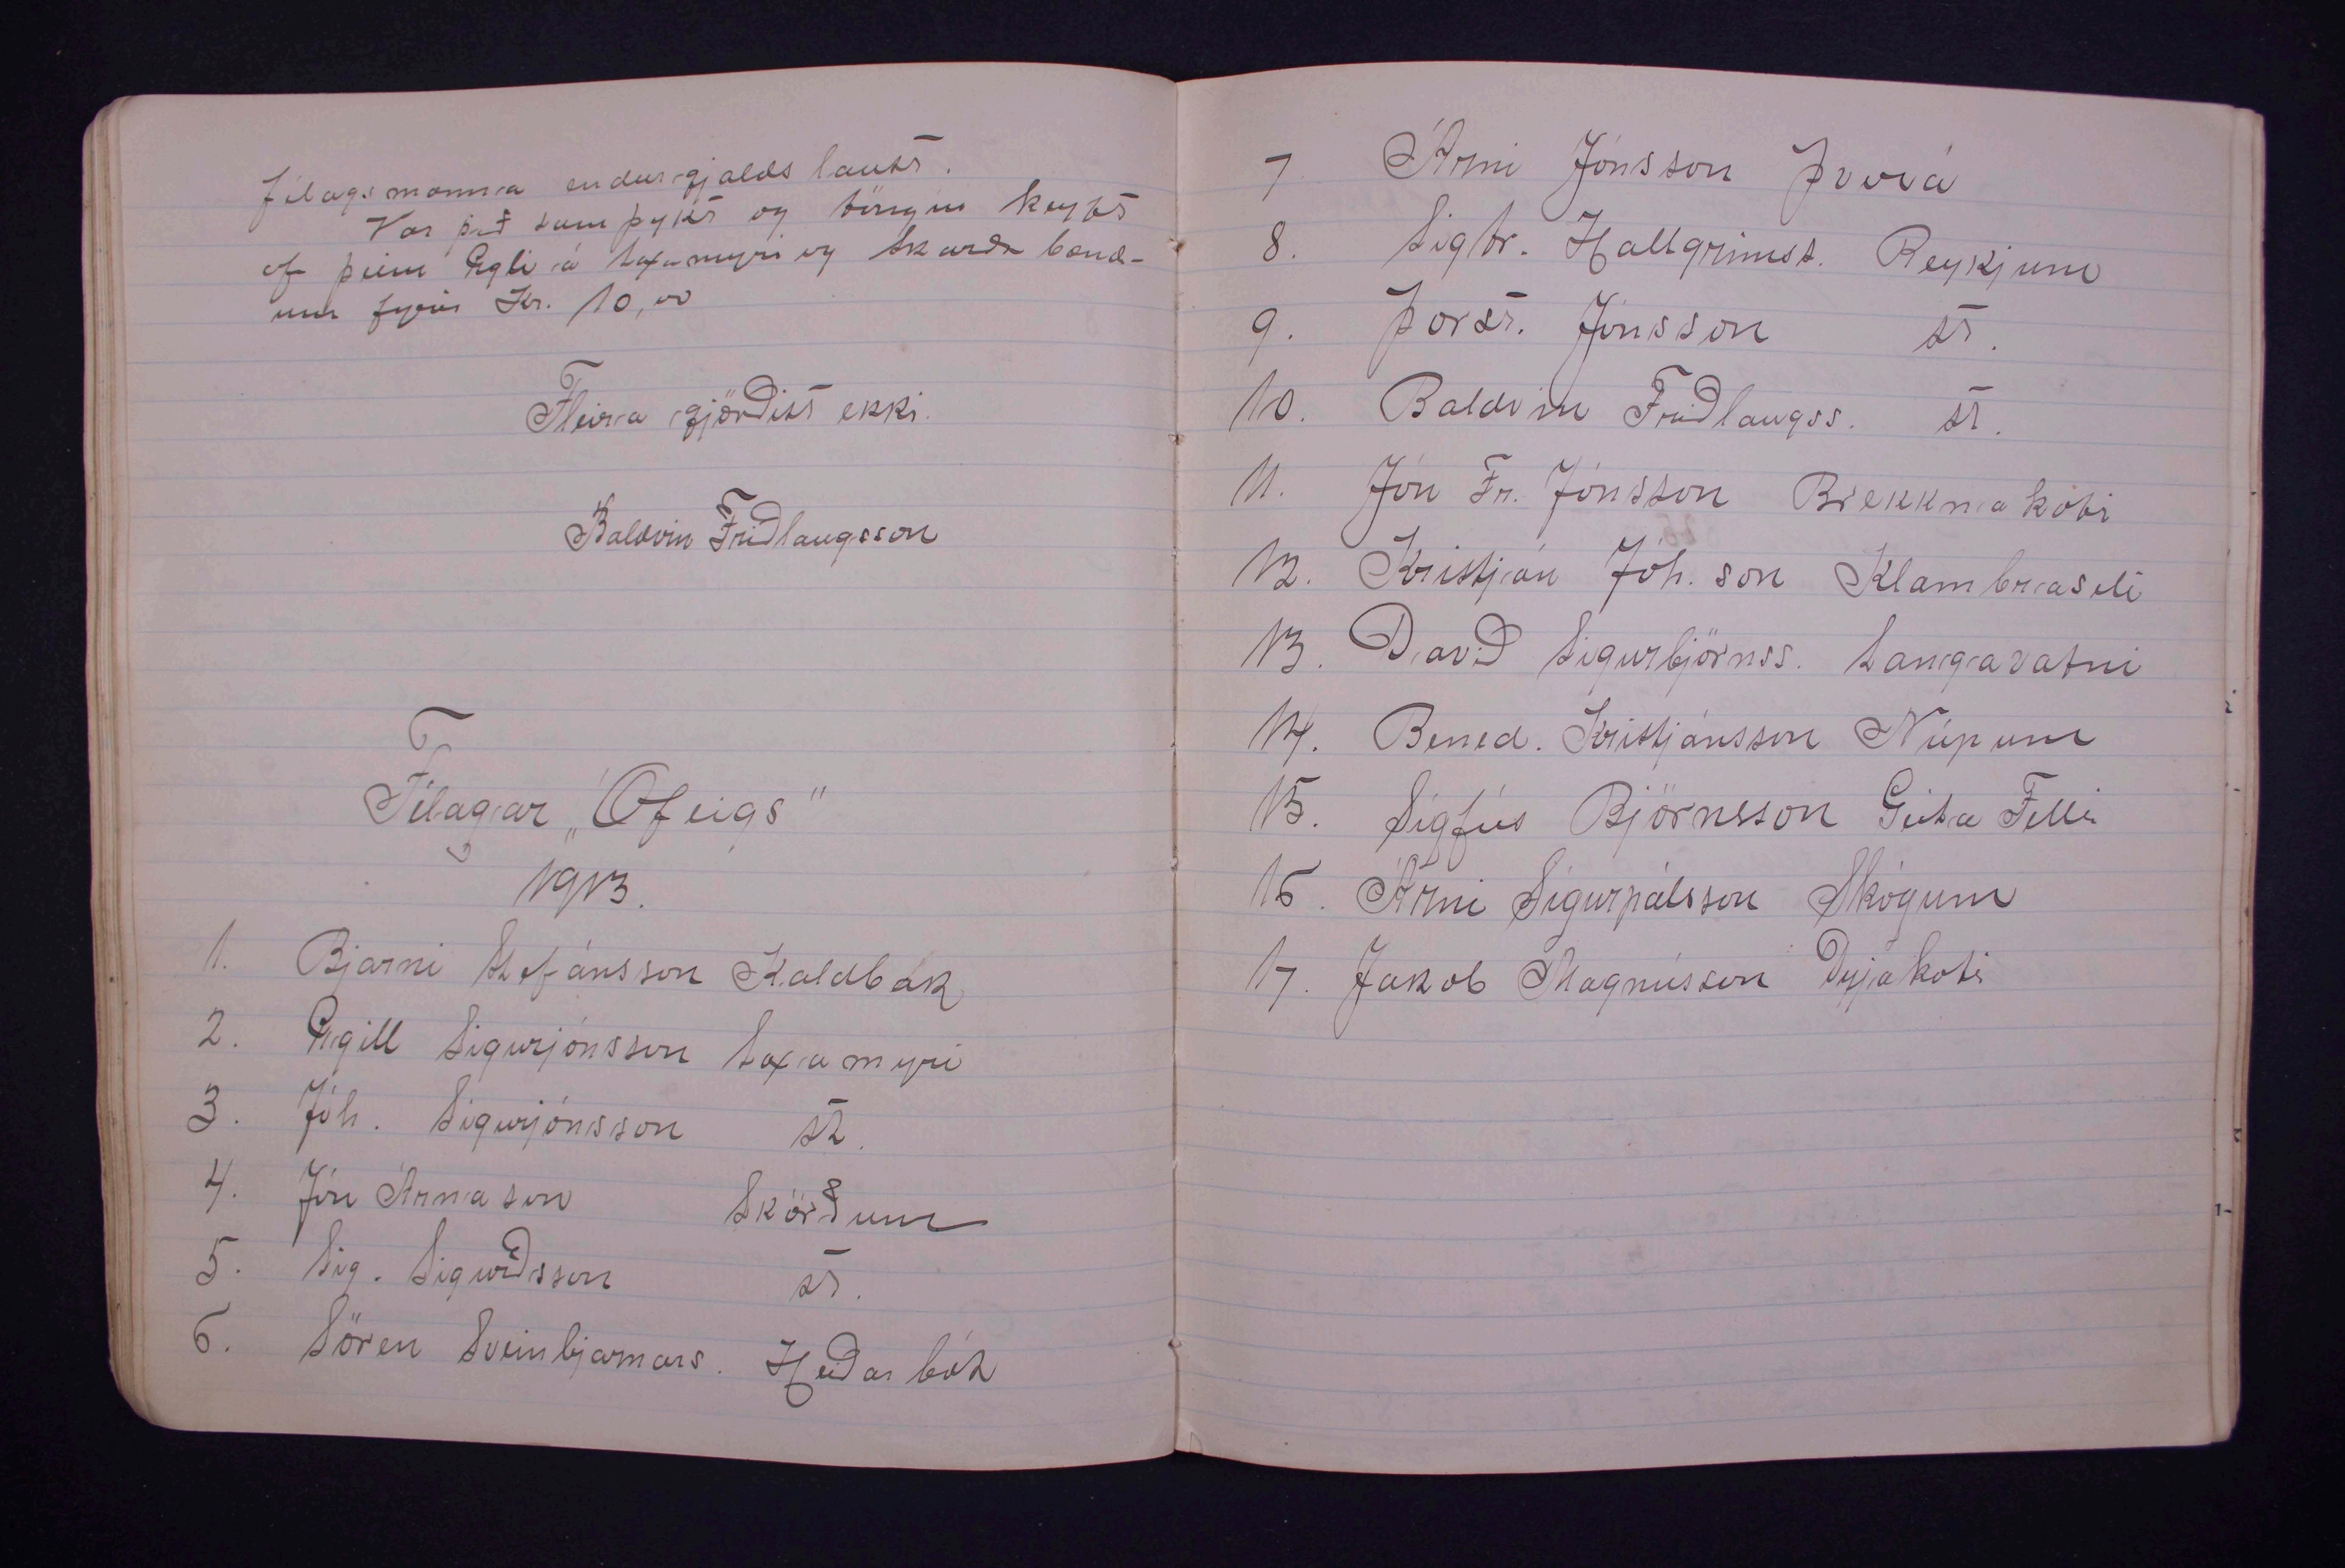 félagsmanna endurgjalds laust.
Var það samþykt og töngin keypt
af þeim Agli á Laxamýri og Skarða bænd-
um fyrir Kr. 10,00
Fleira gjörðist ekki.
Baldvin Friðlaugsson
Félagar „Ófeigs"
1913.
1. Bjarni Stefánsson Kaldbak
2. Egill Sigurjónsson Laxamýri
3. Jóh. Sigurjónsson st.
4. Jón Árnason Skörðum
5. Sig. Sigurðsson st.
6. Sören Sveinbjarnars. Heiðarbót
7 Árni Jónsson Þverá
8. Sigtr. Hallgrímss. Reykjum
9. Þorst. Jónsson st.
10. Baldvin Friðlaugss. st.
11. Jón Fr. Jónsson Brekknakoti
12. Kristján Jóh.son Klambraseli
13. Davíð Sigurbjörnss. Langavatni
14. Bened. Kristjánsson Núpum
15. Sigfús Björnsson Geita Felli
16. Árni Sigurpálsson Skógum
17. Jakob Magnússon Dýjakoti